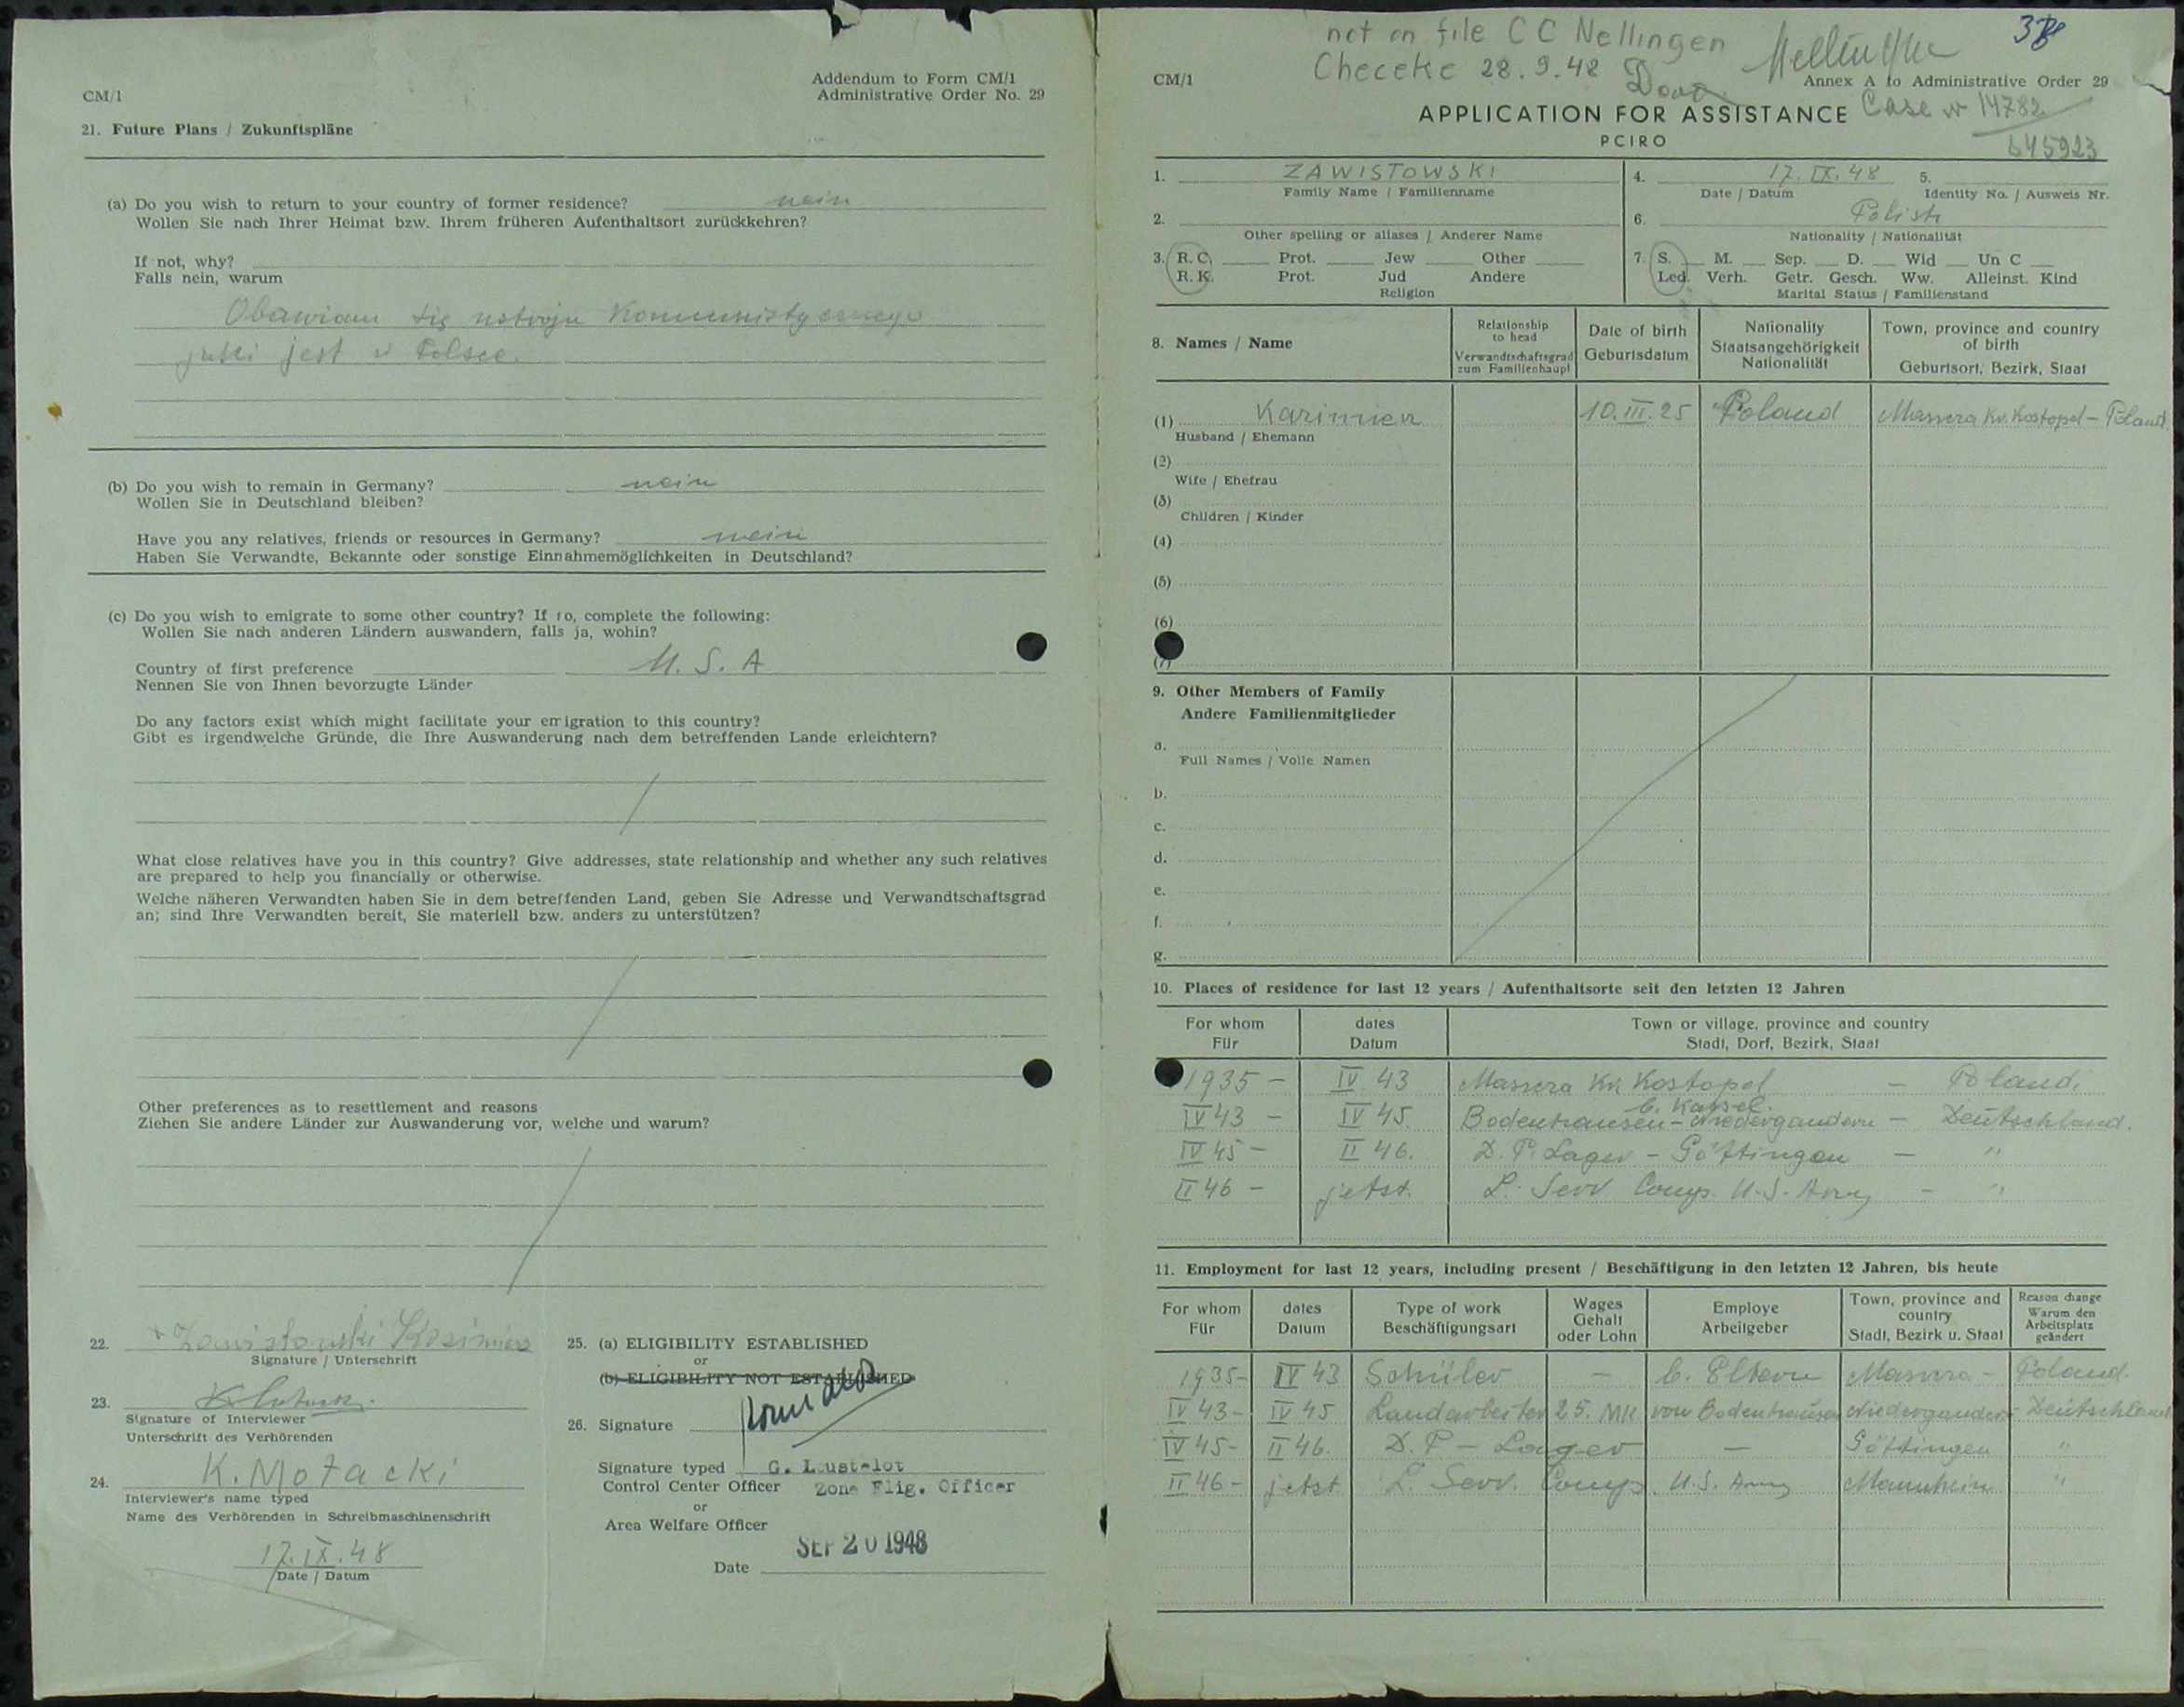 CM/1
Addendum to Form CM/1
Administrative Order No. 29
21. Future Plans / Zukunftspläne
(a) Do you wish to return to your country of former residence? nein
Wollen Sie nach Ihrer Heimat bzw. Ihrem früheren Aufenthaltsort zurückkehren?
If not, why?
Falls nein, warum
Obawiam się ustroju Komunistycznego
jaki jest w Polsce.
(b) Do you wish to remain in Germany? nein
Wollen Sie in Deutschland bleiben?
Have you any relatives, friends or resources in Germany? nein
Haben Sie Verwandte, Bekannte oder sonstige Einnahmemöglichkeiten in Deutschland?
(c) Do you wish to emigrate to some other country? If so, complete the following:
Wollen Sie nach anderen Ländern auswandern, falls ja, wohin?
Country of first preference U. S. A
Nennen Sie von Ihnen bevorzugte Länder
Do any factors exist which might facilitate your emigration to this country?
Gibt es irgendwelche Gründe, die Ihre Auswanderung nach dem betreffenden Lande erleichtern?
What close relatives have you in this country? Give addresses, state relationship and whether any such relatives
are prepared to help you financially or otherwise.
Welche näheren Verwandten haben Sie in dem betreffenden Land, geben Sie Adresse und Verwandtschaftsgrad
an; sind Ihre Verwandten bereit, Sie materiell bzw. anders zu unterstützen?
Other preferences as to resettlement and reasons
Ziehen Sie andere Länder zur Auswanderung vor, welche und warum?
22. Zawistowski Kazimierz
Signature / Unterschrift
23.
Signature of Interviewer
Unterschrift des Verhörenden
24. K. Mołacki
Interviewer's name typed
Name des Verhörenden in Schreibmaschinenschrift
17. IX. 48
Date / Datum
25. (a) ELIGIBILITY ESTABLISHED
or
(b) ELIGIBILITY NOT ESTABLISHED
26. Signature
Signature typed G. Loustalot
Control Center Officer Zone Elig. Officer
or
Area Welfare Officer
SEP 20 1948
Date
not on file CC Nellingen
38
Checeke 28. 9. 48
CM/1
Annex A to Administrative Order 29
APPLICATION FOR ASSISTANCE Case nr 14782
PCIRO
645923
1. ZAWISTOWSKI
Family Name / Familienname
4. 17. IX. 48
Date / Datum
5.
Identity No. / Ausweis Nr.
2.
Other spelling or aliases / Anderer Name
6. Polish
Nationality / Nationalität
3. R. C. Prot. Jew Other
R. K. Prot. Jud Andere
Religion
7. S. M. Sep. D. Wid Un C
Led. Verh. Getr. Gesch. Ww. Alleinst. Kind
Marital Status / Familienstand
8. Names / Name
Relationship to head
Verwandtschaftsgrad zum Familienhaupt
Date of birth
Geburtsdatum
Nationality
Staatsangehörigkeit
Nationalität
Town, province and country of birth
Geburtsort, Bezirk, Staat
(1) Kazimierz 10. III. 25 Poland Massera Kr. Kostopol - Poland
Husband / Ehemann
(2)
Wife / Ehefrau
(3)
Children / Kinder
(4)
(5)
(6)
(7)
9. Other Members of Family
Andere Familienmitglieder
a.
Full Names / Volle Namen
b.
c.
d.
e.
f.
g.
10. Places of residence for last 12 years / Aufenthaltsorte seit den letzten 12 Jahren
For whom dates Town or village, province and country
Für Datum Stadt, Dorf, Bezirk, Staat
1935 - IV 43 Massera Kr. Kostopol - Poland.
b. Kassel.
IV 43 - IV 45. Bodenhausen - Niedergandern - Deutschland.
IV 45 - II 46. D. P. Lager - Göttingen - "
II 46 - jetzt. L. Serv Comp. U. S. Army - "
11. Employment for last 12 years, including present / Beschäftigung in den letzten 12 Jahren, bis heute
For whom
Für
dates
Datum
Type of work
Beschäftigungsart
Wages
Gehalt
oder Lohn
Employe
Arbeitgeber
Town, province and country
Stadt, Bezirk u. Staat
Reason change
Warum den
Arbeitsplatz
geändert
1935 - IV 43 Schüler - b. Eltern Massera - Poland.
IV 43 - IV 45 Landarbeiter 25. MK. von Bodenhausen Niedergandern - Deutschland
IV 45 - II 46. D. P - Lager - Göttingen "
II 46 - jetzt L. Serv. Comp. U. S. Army Mannheim "